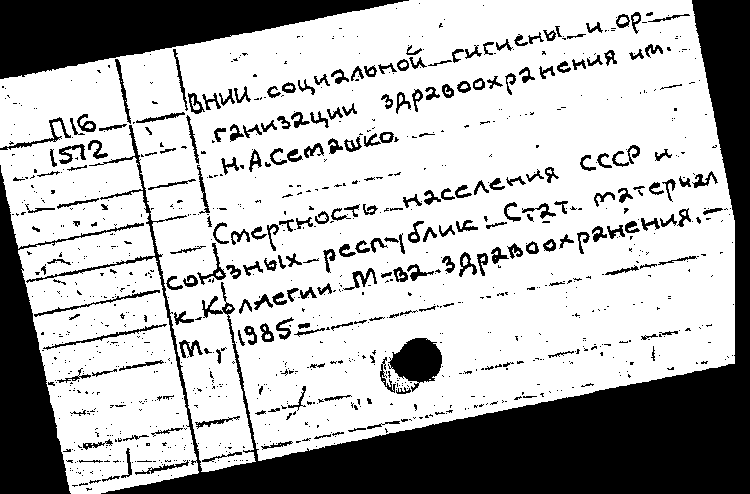 П16
1572
ВНИИ социальной гигиены и ор-
ганизации здравоохранения им.
Н.А.Семашко.
Смертность населения СССР и
союзных республик: Стат. материал
к Коллегии М-ва здравоохранения.-
М., 1985-